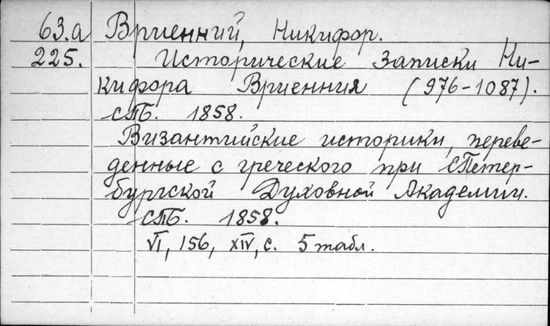 63.а Вриенний, Никифор.
225. Исторические Записки Ни-
кифора Вриенния (976-1087).
СПБ. 1858.
Византийские историки, переве-
денные с греческого при СПетер-
бургской Духовной Академии.
СПБ. 1858.
VI, 156, XIV, с. 5 табл.